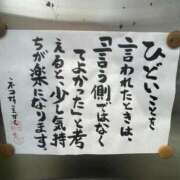 ひどいことを
言われたときは、
「言う側ではなく
てよかった」と考
えると少し気持
ちが楽になります。